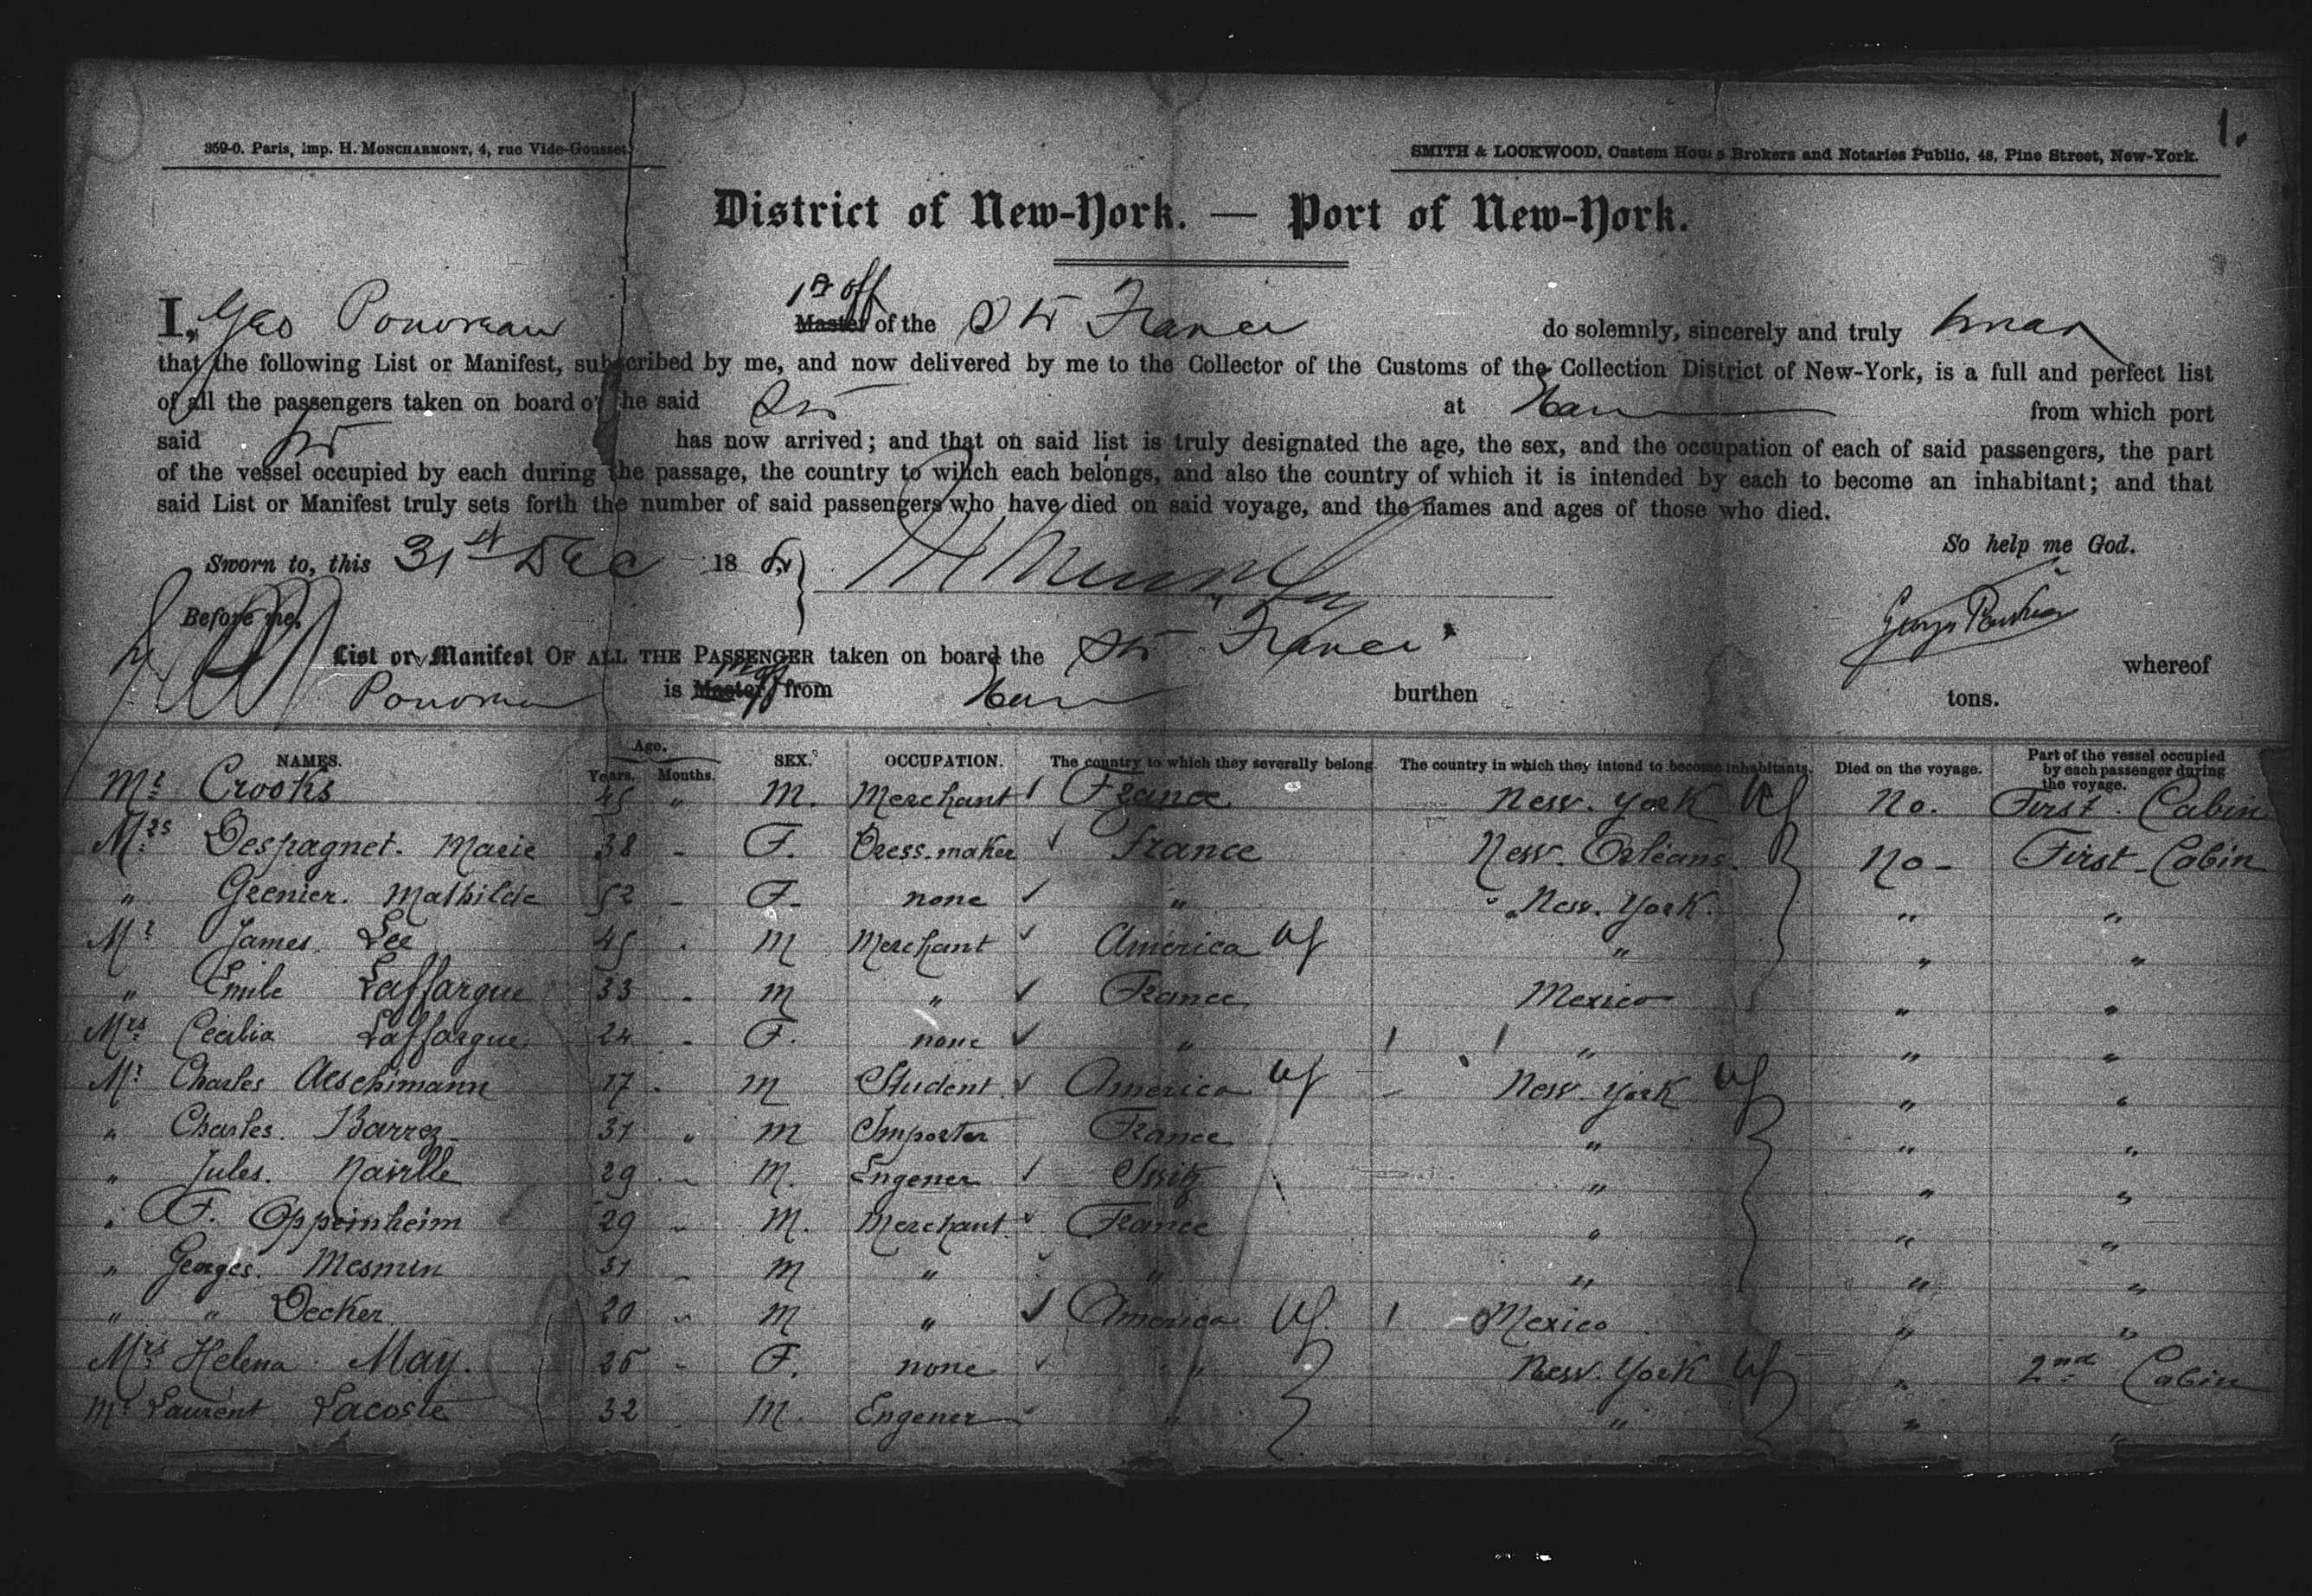 1.
359-0. Paris, imp. H. MONCHARMONT, 4, rue Vide-Gousset.
SMITH & LOCKWOOD, Custom House Brokers and Notaries Public, 48, Pine Street, New-York.
District of New-York. — Port of New-York.
1st off
I, Geo Master of the Str France do solemnly, sincerely and truly swear
that the following List or Manifest, subscribed by me, and now delivered by me to the Collector of the Customs of the Collection District of New-York, is a full and perfect list
of all the passengers taken on board of the said Str at Havre from which port
said Str has now arrived; and that on said list is truly designated the age, the sex, and the occupation of each of said passengers, the part
of the vessel occupied by each during the passage, the country to wihch each belongs, and also the country of which it is intended by each to become an inhabitant; and that
said List or Manifest truly sets forth the number of said passengers who have died on said voyage, and the names and ages of those who died.
So help me God.
Sworn to, this 31st Dec 18
Before me,
List or Manifest OF ALL THE PASSENGER taken on board the Str France whereof
is Master, from Havre burthen tons.
NAMES. Age. Years. Months. SEX. OCCUPATION. The country to which they severally belong. The country in which they intend to become inhabitants. Died on the voyage. Part of the vessel occupied by each passenger during the voyage.
Mr Crooks 45 " M. Merchant France New. York No. First. Cabin
Mrs Despagnet. Marie 38 - F. Dress.maker France New. Orléans. No - First - Cabin
" Grenier. Mathilde 52 - F. none " New. York. " "
Mr James. Lee 45 . M Merchant America " " "
" Emile Laffargue 33 . M " France Mexico " "
Mrs Cécilia Laffargue 24 - F. none " " " "
Mr Charles Aeschimann 17 - M Student America New. York " "
" Charles. Barrez 31 " M Importer France " " "
" Jules. Naville 29 - M. Engener Switz " " "
" F. Oppeinheim 29 - M. Merchant France " " "
" Georges. Mesmin 31 - M " " " " "
" " Decker 20 " M " America Mexico " "
Mrs Helena May. 25 - F. none " New. York " 2nd Cabin
Mr Laurent Lacoste 32 - M. Engener " " " "